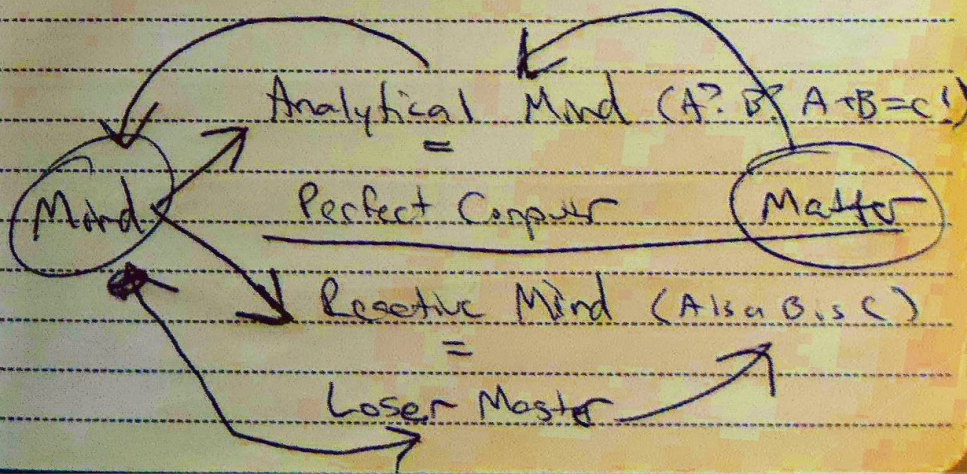 Analytical Mind (A? B? A+B=C!)
=
Mind
Perfect Computer
Matter
Reactive Mind (A is a B is C)
=
Loser Master